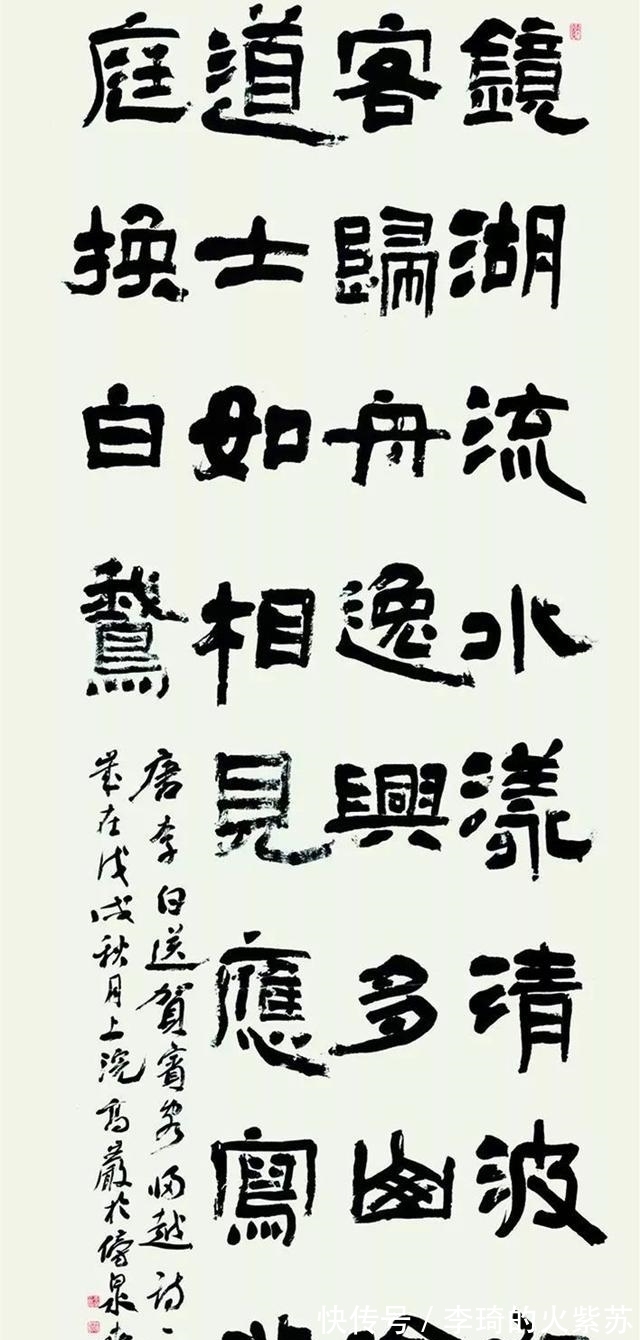 鏡湖流水漾清波
客歸舟逸興多山
道士如相見應寫
庭換白鵞
唐李白送賀賓客歸越詩一
歲在戊戌秋月上浣高嚴於泉
快传号 / 李琦的火紫苏